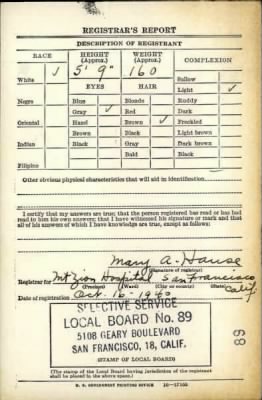 REGISTRAR'S REPORT
DESCRIPTION OF REGISTRANT
RACE HEIGHT (Approx.) WEIGHT (Approx.) COMPLEXION
White ✓ 5' 9" 160 Sallow
EYES HAIR Light ✓
Negro Blue Blonde Ruddy
Gray ✓ Red Dark
Oriental Hazel Brown ✓ Freckled
Brown Black Light brown
Indian Black Gray Dark brown
Bald Black
Filipino
Other obvious physical characteristics that will aid in identification
I certify that my answers are true; that the person registered has read or has had
read to him his own answers; that I have witnessed his signature or mark and that
all of his answers of which I have knowledge are true, except as follows:
Mary A. Hause
(Signature of registrar)
Registrar for Mt Zion Hospital San Francisco
(Precinct) (Ward) (City or county) (State)
Calif.
Date of registration Oct. 16 - 1940
SELECTIVE SERVICE
LOCAL BOARD No. 89
5108 GEARY BOULEVARD
SAN FRANCISCO, 18, CALIF.
(STAMP OF LOCAL BOARD)
89
(The stamp of the Local Board having jurisdiction of the registrant
shall be placed in the above space.)
U. S. GOVERNMENT PRINTING OFFICE 16—17105